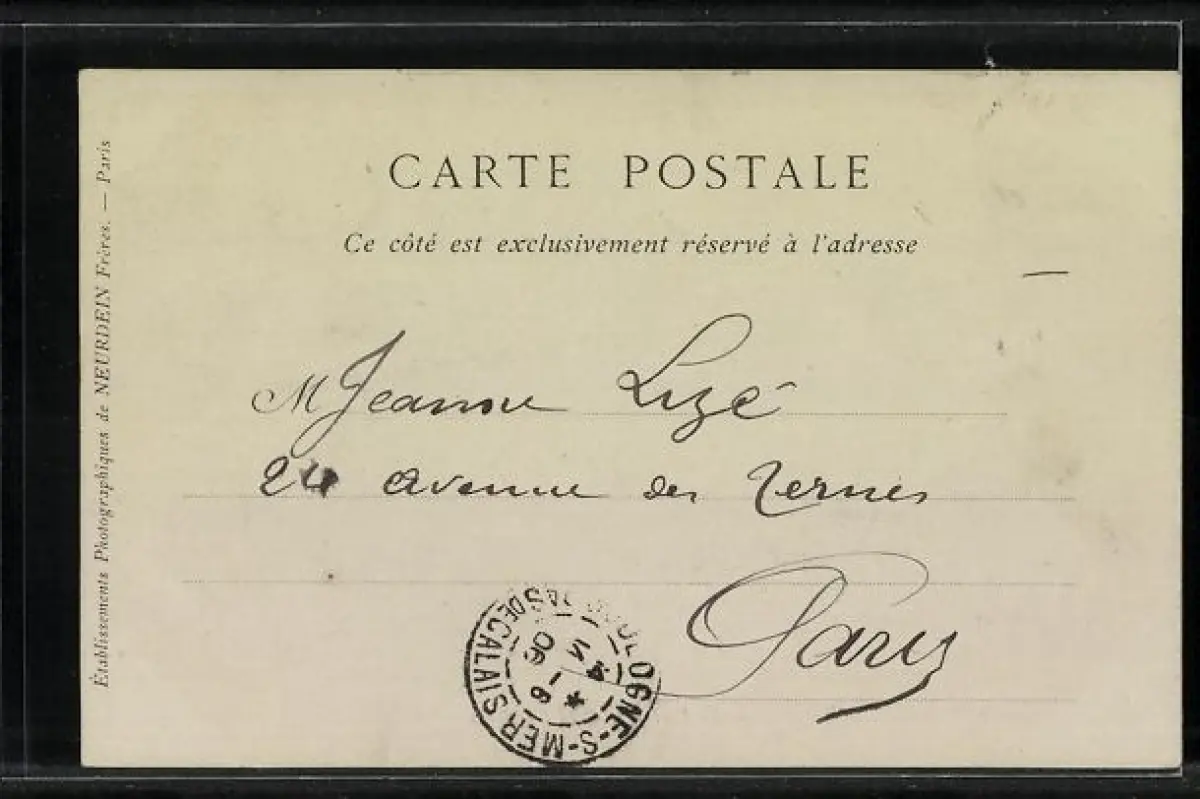 CARTE POSTALE
Ce côté est exclusivement réservé à l'adresse
M Jeanne Lizé
24 avenue des Ternes
Paris
Établissements Photographiques de NEURDEIN Frères. — Paris
BOULOGNE-S-MER PAS DE CALAIS